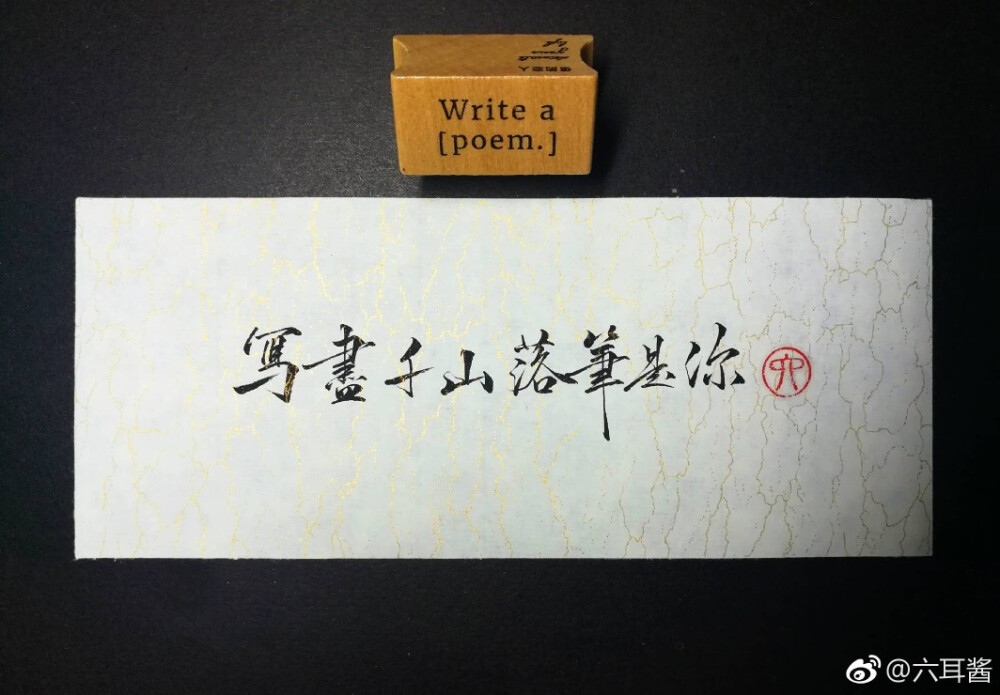 Write a
[poem.]
寫盡千山落筆是你
六
@六耳酱